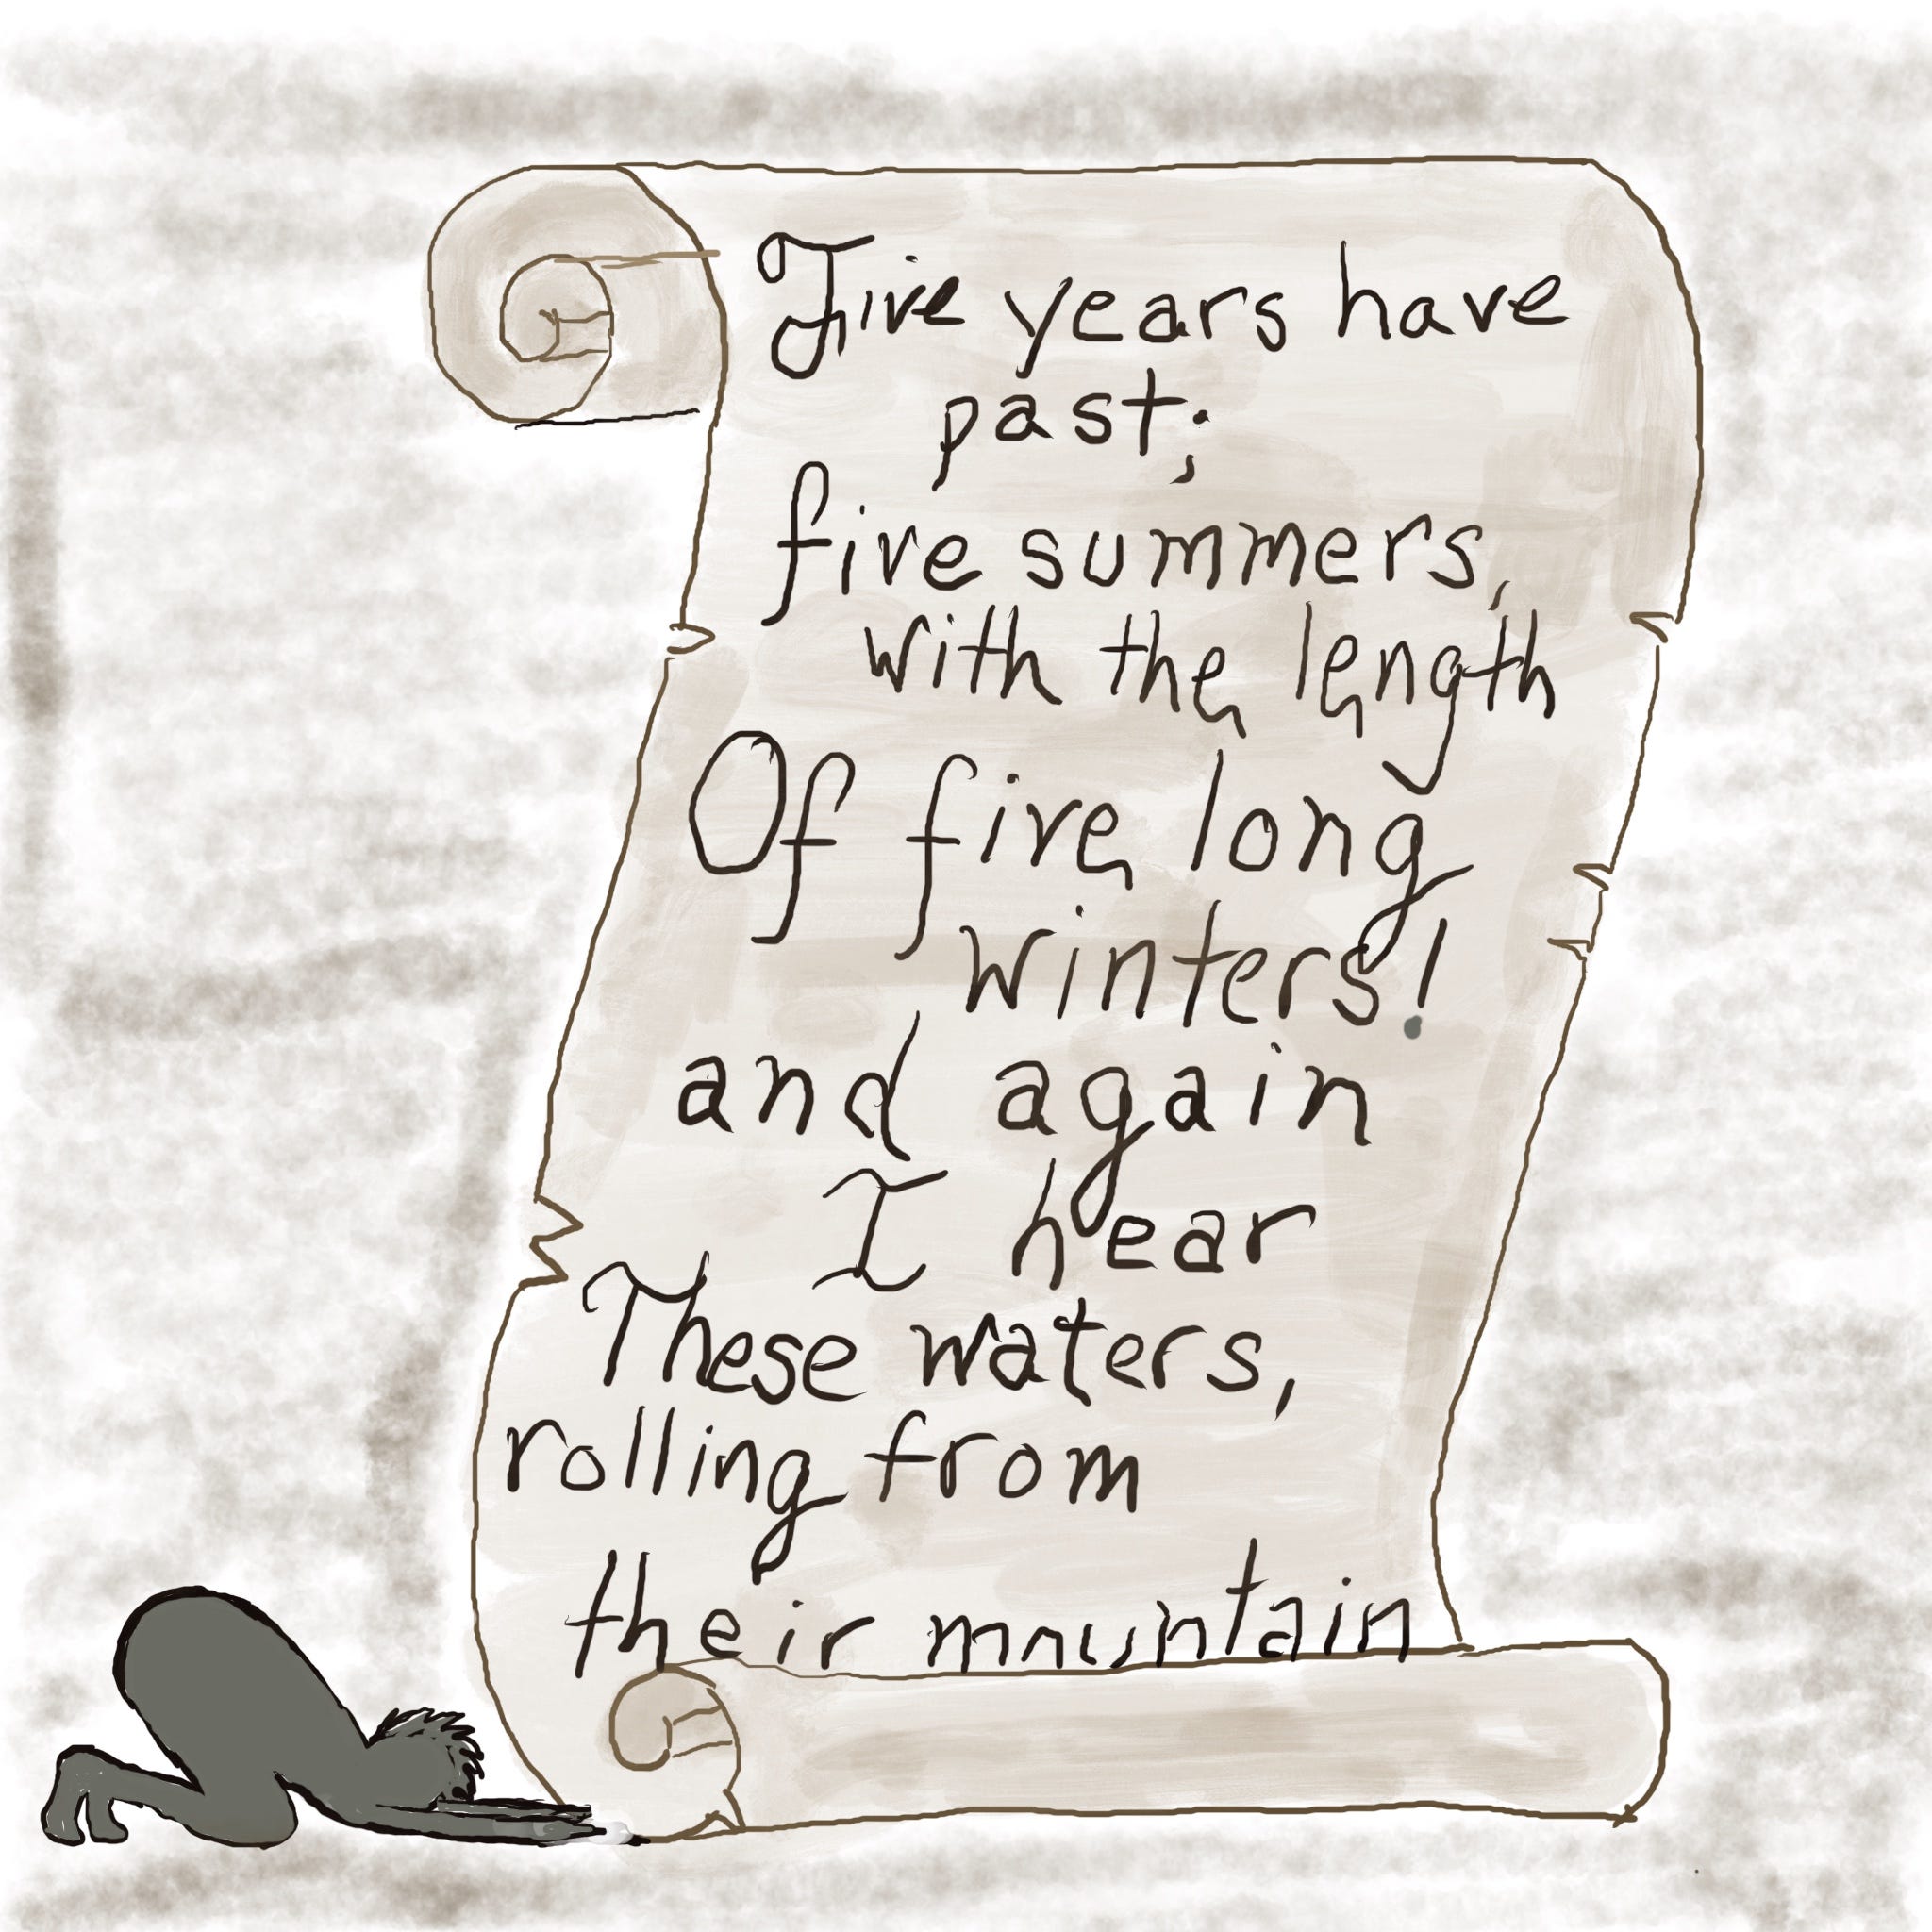 Five years have
past;
five summers,
with the length
Of five long
winters!
and again
I hear
These waters,
rolling from
their mountain